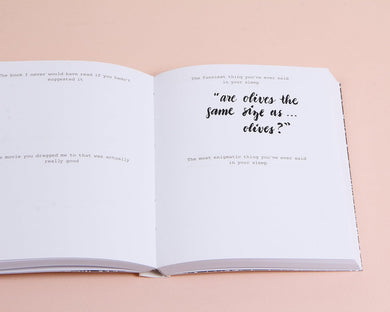 The book I never would have read if you hadn't
suggested it
The movie you dragged me to that was actually
really good
The funniest thing you've ever said
in your sleep
"are olives the
same size as ...
olives?"
The most enigmatic thing you've ever said
in your sleep